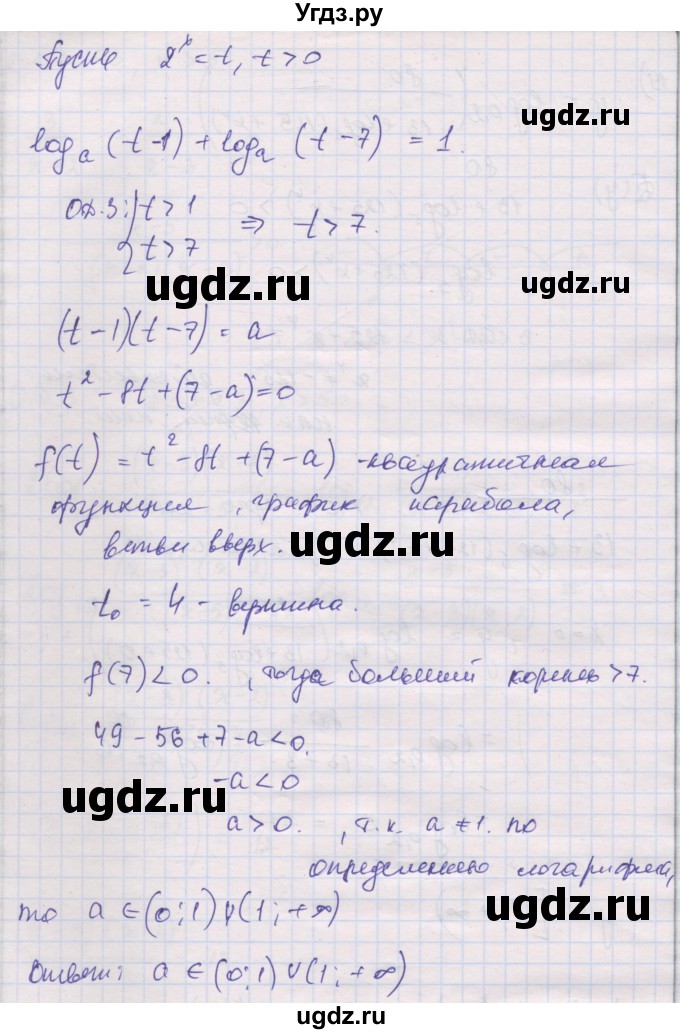 Угдз.ру
Пусть 2ˣ = t, t > 0
logₐ (t - 1) + logₐ (t - 7) = 1.
ugdz.ru
ОДЗ: { t > 1
t > 7 ⇒ t > 7.
ugdz.ru
ugdz.ru
(t - 1)(t - 7) = a
ugdz.ru
t² - 8t + (7 - a) = 0
f(t) = t² - 8t + (7 - a) - квадратичная
функция, график парабола,
ветви вверх.
ugdz.ru
t₀ = 4 - вершина.
ugdz.ru
f(7) < 0. , тогда больший корень > 7.
49 - 56 + 7 - a < 0.
ugdz.ru
-a < 0
ugdz.ru
a > 0. , т.к. a ≠ 1. по
определению логарифма,
то a ∈ (0; 1) ∪ (1; +∞)
ugdz.ru
Ответ: a ∈ (0; 1) ∪ (1; +∞)
ugdz.ru